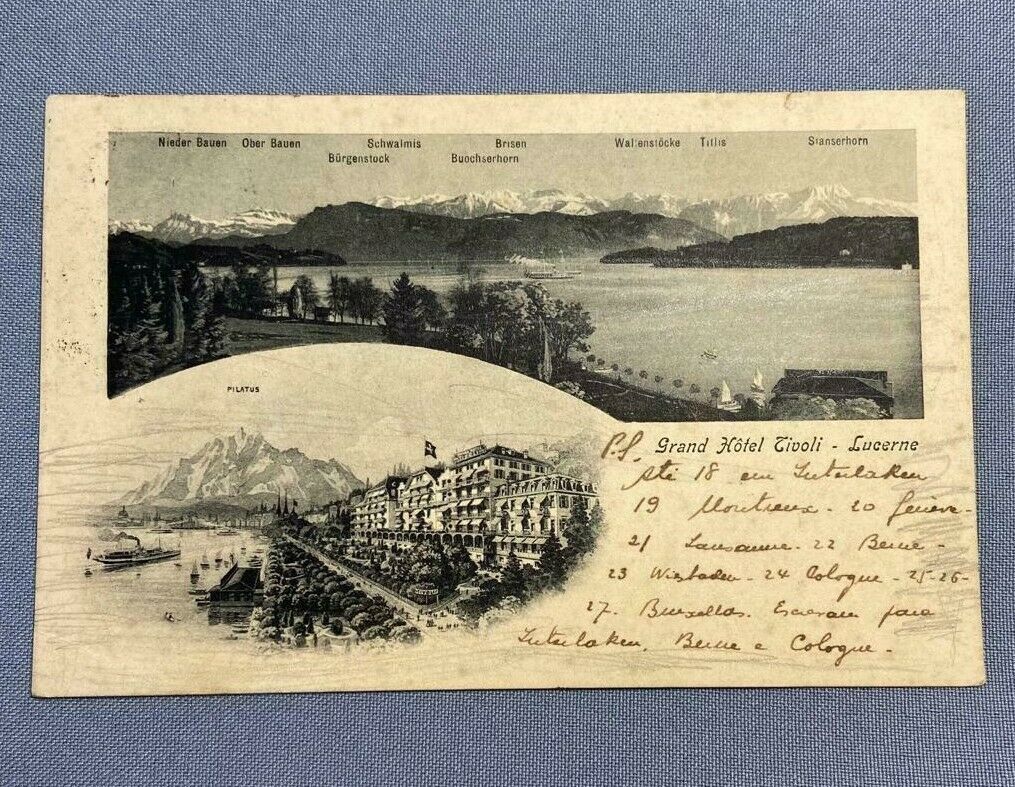 Nieder Bauen Ober Bauen Schwalmis Brisen Wallenstöcke Titlis Stanserhorn
Bürgenstock Buochserhorn
PILATUS
Grand Hôtel Tivoli - Lucerne
P.S.
Até 18 em Interlaken
19 Montreux - 20 Genève -
21 Lausanne - 22 Berne -
23 Wiesbaden - 24 Cologne - 25-26-
27. Bruxellas. Escrevam para
Interlaken, Berne e Cologne -